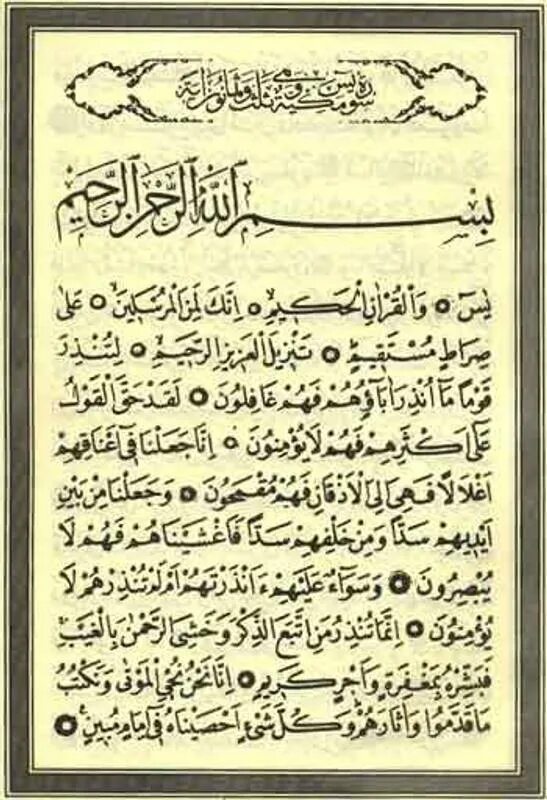 سورة يس مكية وهي ثلث وثمانون اية
بِسْمِ اللّٰهِ الرَّحْمٰنِ الرَّحِيمِ
يٰسٓ ۝ وَالْقُرْاٰنِ الْحَكِيمِ ۝ اِنَّكَ لَمِنَ الْمُرْسَلِينَ ۝ عَلٰى
صِرَاطٍ مُسْتَقِيمٍ ۝ تَنْزِيلَ الْعَزِيزِ الرَّحِيمِ ۝ لِتُنْذِرَ
قَوْمًا مَٓا اُنْذِرَ اٰبَٓاؤُ۬هُمْ فَهُمْ غَافِلُونَ ۝ لَقَدْ حَقَّ الْقَوْلُ
عَلٰٓى اَكْثَرِهِمْ فَهُمْ لَا يُؤْمِنُونَ ۝ اِنَّا جَعَلْنَا فٓى اَعْنَاقِهِمْ
اَغْلَالًا فَهِىَ اِلَى الْاَذْقَانِ فَهُمْ مُقْمَحُونَ ۝ وَجَعَلْنَا مِنْ بَيْنِ
اَيْدِيهِمْ سَدًّا وَمِنْ خَلْفِهِمْ سَدًّا فَاَغْشَيْنَاهُمْ فَهُمْ لَا
يُبْصِرُونَ ۝ وَسَوَٓاءٌ عَلَيْهِمْ ءَاَنْذَرْتَهُمْ اَمْ لَمْ تُنْذِرْهُمْ لَا
يُؤْمِنُونَ ۝ اِنَّمَا تُنْذِرُ مَنِ اتَّبَعَ الذِّكْرَ وَخَشِىَ الرَّحْمٰنَ بِالْغَيْبِ
فَبَشِّرْهُ بِمَغْفِرَةٍ وَاَجْرٍ كَرِيمٍ ۝ اِنَّا نَحْنُ نُحْيِ الْمَوْتٰى وَنَكْتُبُ
مَا قَدَّمُوا وَاٰثَارَهُمْ وَكُلَّ شَىْءٍ اَحْصَيْنَاهُ فٓى اِمَامٍ مُبِينٍ ۝